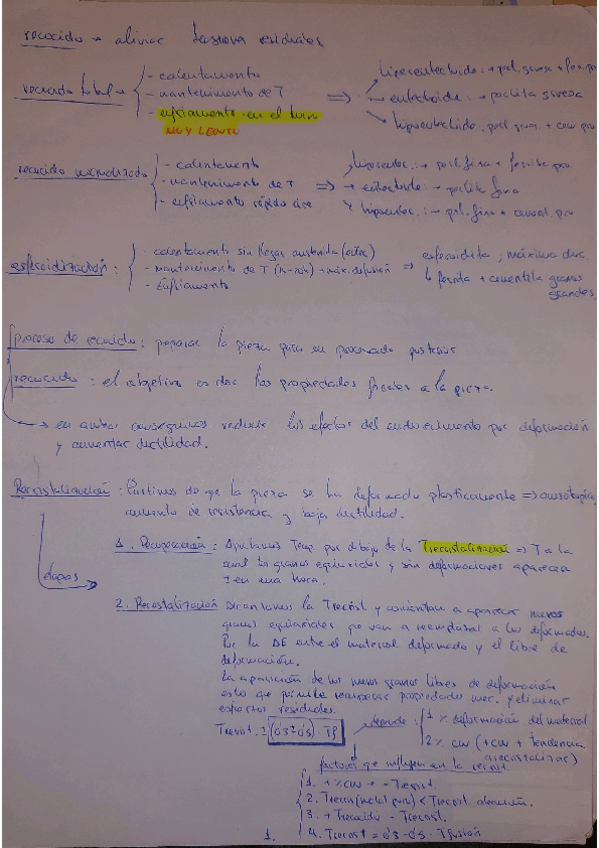 recocido → aliviar tensiones residuales
- calentamiento
recocido total → - mantenimiento de T ⇒
- enfriamiento en el horno
MUY LENTO
hipoeutectoide: → perl. gruesa + ferr. pro
eutectoide: → perlita gruesa
hipereutectoide: perl. grue. + cem pro
- calentamient
recocido normalizado - mantenimiento de T ⇒
- enfriamiento rápido aire
hipoeutec: → perl. fina + ferrita pro.
→ eutectoide → perlita fina
hipereutec: → perl. fina + cement. pro
- calentamiento sin llegar austenita
esferoidización: - mantenimiento de T → máx. difusión ⇒ esferoidita ; máxima duc.
- Enfriamiento
↳ ferrita + cementita granos grandes.
proceso de recocido: preparar la pieza para su procesado posterior
recocido: el objetivo es dar las propiedades finales a la pieza.
→ en ambos conseguimos reducir los efectos del endurecimiento por deformación
y aumentar ductilidad.
Recristalización: Partimos de que la pieza se ha deformado plásticamente ⇒
aumento de resistencia y baja ductilidad.
etapas
1. Recuperación: por debajo de la Trecristalización ⇒ T a la
cual los granos equiaxiales y sin deformaciones aparecen
en una hora.
2. Recristalización la Trecrist y comienzan a aparecer nuevos
granos equiaxiales que van a reemplazar a los deformados.
Por la DE entre el material deformado y el libre de
deformación.
La aparición de los nuevos granos libres de deformación
es lo que permite recuperar propiedades mec. y eliminar
esfuerzos residuales.
Trecrist. = (0'3-0'5) · Tf
depende: 1 % deformación del material
2 % cw (+cw + tendencia
a recristalizar)
factores que influyen en la recrist.
1. + % cw → - Trecrist.
2. Trecris (metal puro) < Trecrist. aleación.
3. + Trecocido - Trecrist.
4. Trecrist = 0'3-0'5 · Tfusión
1.